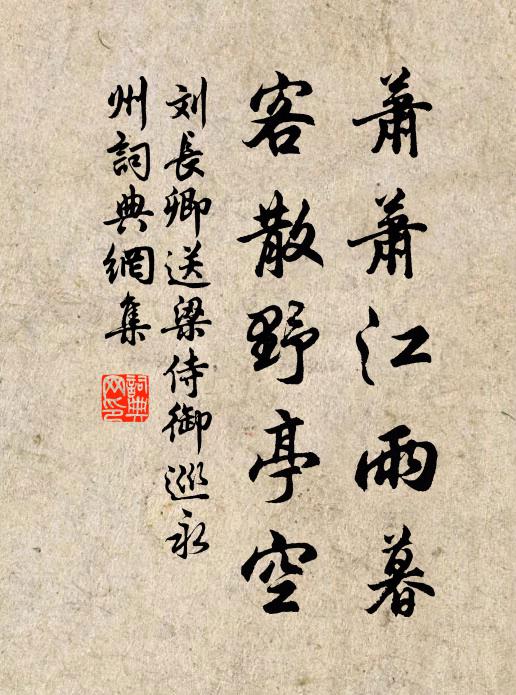 蕭蕭江雨暮
客散野亭空
刘長卿送梁侍御巡永
州詞典網集
詞典
网印